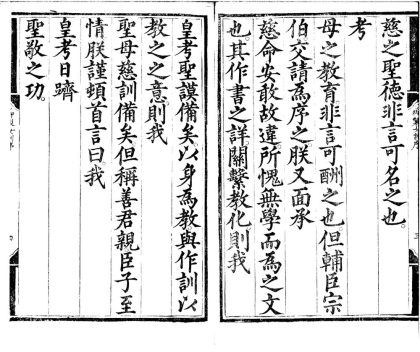 慈之聖德非言可名之也
考
母之教育非言可酬之也但輔臣宗
伯交請為序之朕又面承
慈命安敢故違所愧無學而為之文
也其作書之詳關繫教化則我
皇考聖謨備矣以身為教與作訓以
教之之意則我
聖母慈訓備矣但稱善君親臣子至
情朕謹頓首言曰我
皇考日躋
聖敬之功